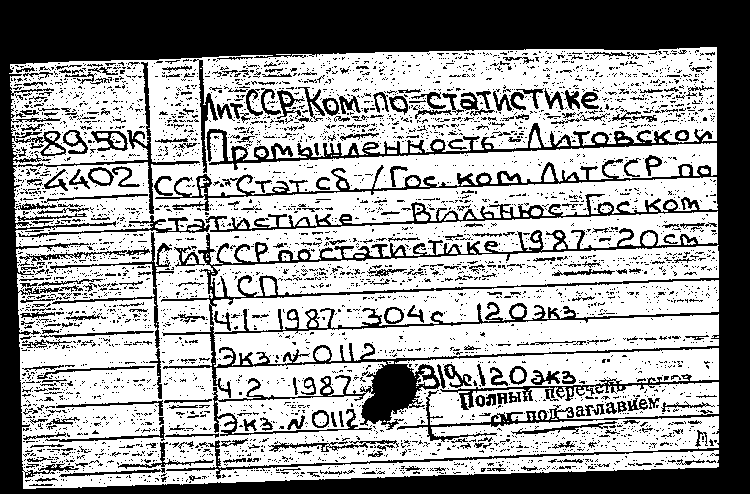 ЛитССР. Ком. по статистике.
89-50К Промышленность Литовской
4402 ССР: Стат. сб. / Гос. ком. ЛитССР по
статистике. - Вильнюс: Гос. ком
ЛитССР по статистике, 1987. - 20 см
ДСП.
Ч.1. 1987. 304 с. 120 экз.
Экз. № 0112
Ч.2. 1987. 319 с. 120 экз
Экз. № 0112.
Полный перечень томов
см. под заглавием.
М.